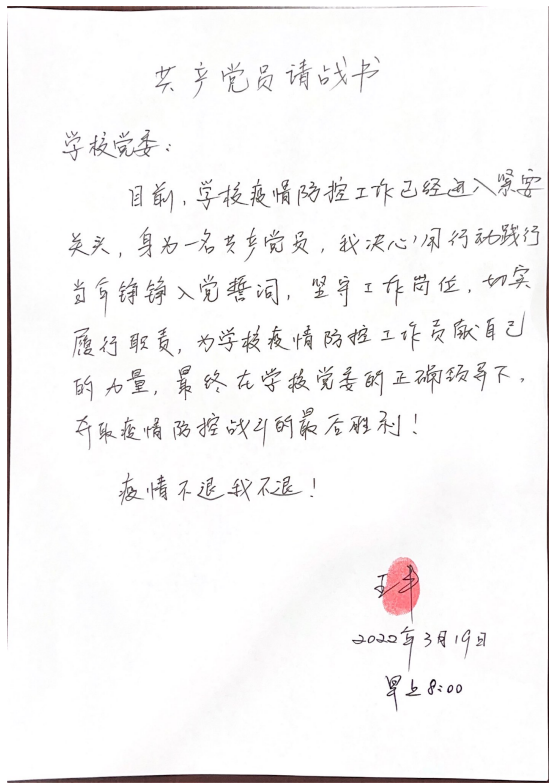 共产党员请战书
学校党委：
目前，学校疫情防控工作已经进入紧要
关头，身为一名共产党员，我决心用行动践行
当年铮铮入党誓词，坚守工作岗位，切实
履行职责，为学校疫情防控工作贡献自己
的力量，最终在学校党委的正确领导下，
夺取疫情防控战斗的最后胜利！
疫情不退我不退！
王
2022年3月19日
早上8:00